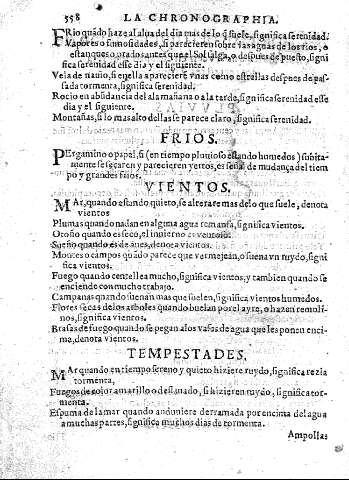 558 LA CHRONOGRAPHIA.
FRio quãdo haze al alua del dia mas de lo q̃ suele, significa serenidad.
Vapores o fumosidades, si parecieren sobre las aguas de los rios, o
estanques o prados antes que el Sol salga, o despues de puesto, signi
fica serenidad esse dia y el siguiente.
Vela de nauio, si en ella aparecieren vnas como estrellas despues de pas-
sada tormenta, significa serenidad.
Rocio en abũdancia del al mañana o a la tarde, significa serenidad esse
dia y el siguiente.
Montañas, si lo mas alto dellas se parece claro, significa serenidad.
FRIOS.
PErgamino o papel, si (en tiempo pluuioso estando humedos) subita-
mente se secaren y parecieren yertos, es señal de mudança del tiem
po y grandes frios.
VIENTOS.
MAr, quando estando quieto, se alterare mas de lo que suele, denota
vientos
Plumas quando nadan en alguna agua remansa, significa vientos.
Otoño quando es seco, el inuierno es ventoso.
Sueño quando es de anes, denota vientos.
Montes o campos quãdo parece que vermejean, o suena vn ruydo, signi
fica vientos.
Fuego quando centellea mucho, significa vientos, y tambien quando se
enciende con mucho trabajo.
Campanas quando suenan mas que suelen, significa vientos humedos.
Flores secas de los arboles quando buelan por el ayre, o hazen remoli-
nos, significa vientos.
Brasas de fuego quando se pegan a los vasos de agua que les ponen enci
ma, denota vientos.
TEMPESTADES.
MAr quando en tiempo sereno y quieto hiziere ruydo, significa rezia
tormenta,
Fuegos de color amarillo o deslauado, si hizieren ruydo, significa tor-
menta.
Espuma de la mar quando anduuiere derramada por encima del agua
a muchas partes, significa muchos dias de tormenta.
Ampollas